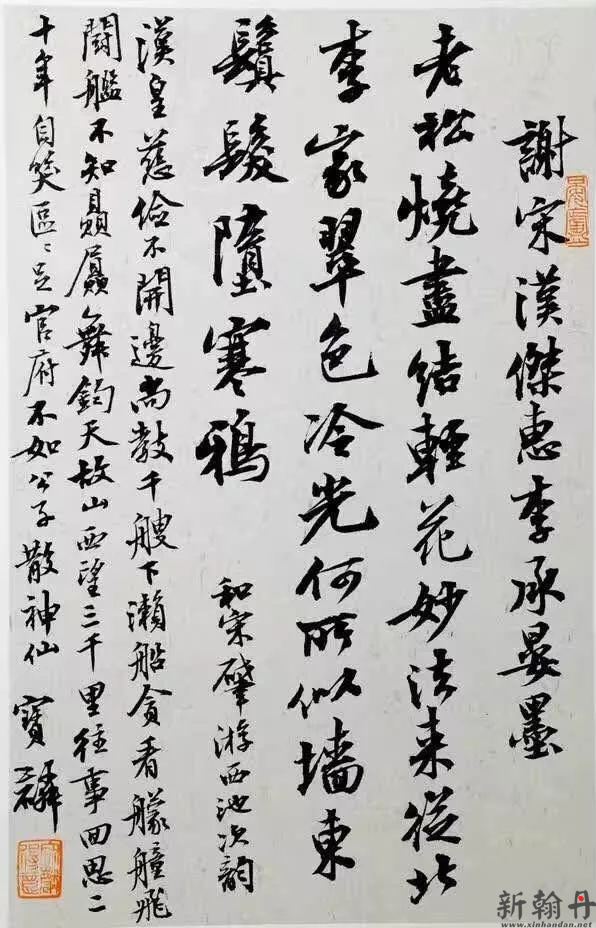 謝宋漢傑惠李承晏墨
老松燒盡結輕花妙法來從北
李家翠色冷光何所似墙東
鬒髮墮寒鴉
和宋肇游西池次韻
漢皇慈儉不開邊尚教千艘下瀨船貪看艨艟飛
鬪艦不知贔屭舞鈞天故山西望三千里往事回思二
十年自笑區〻足官府不如公子散神仙 寶
新翰丹
www.xinhandan.net